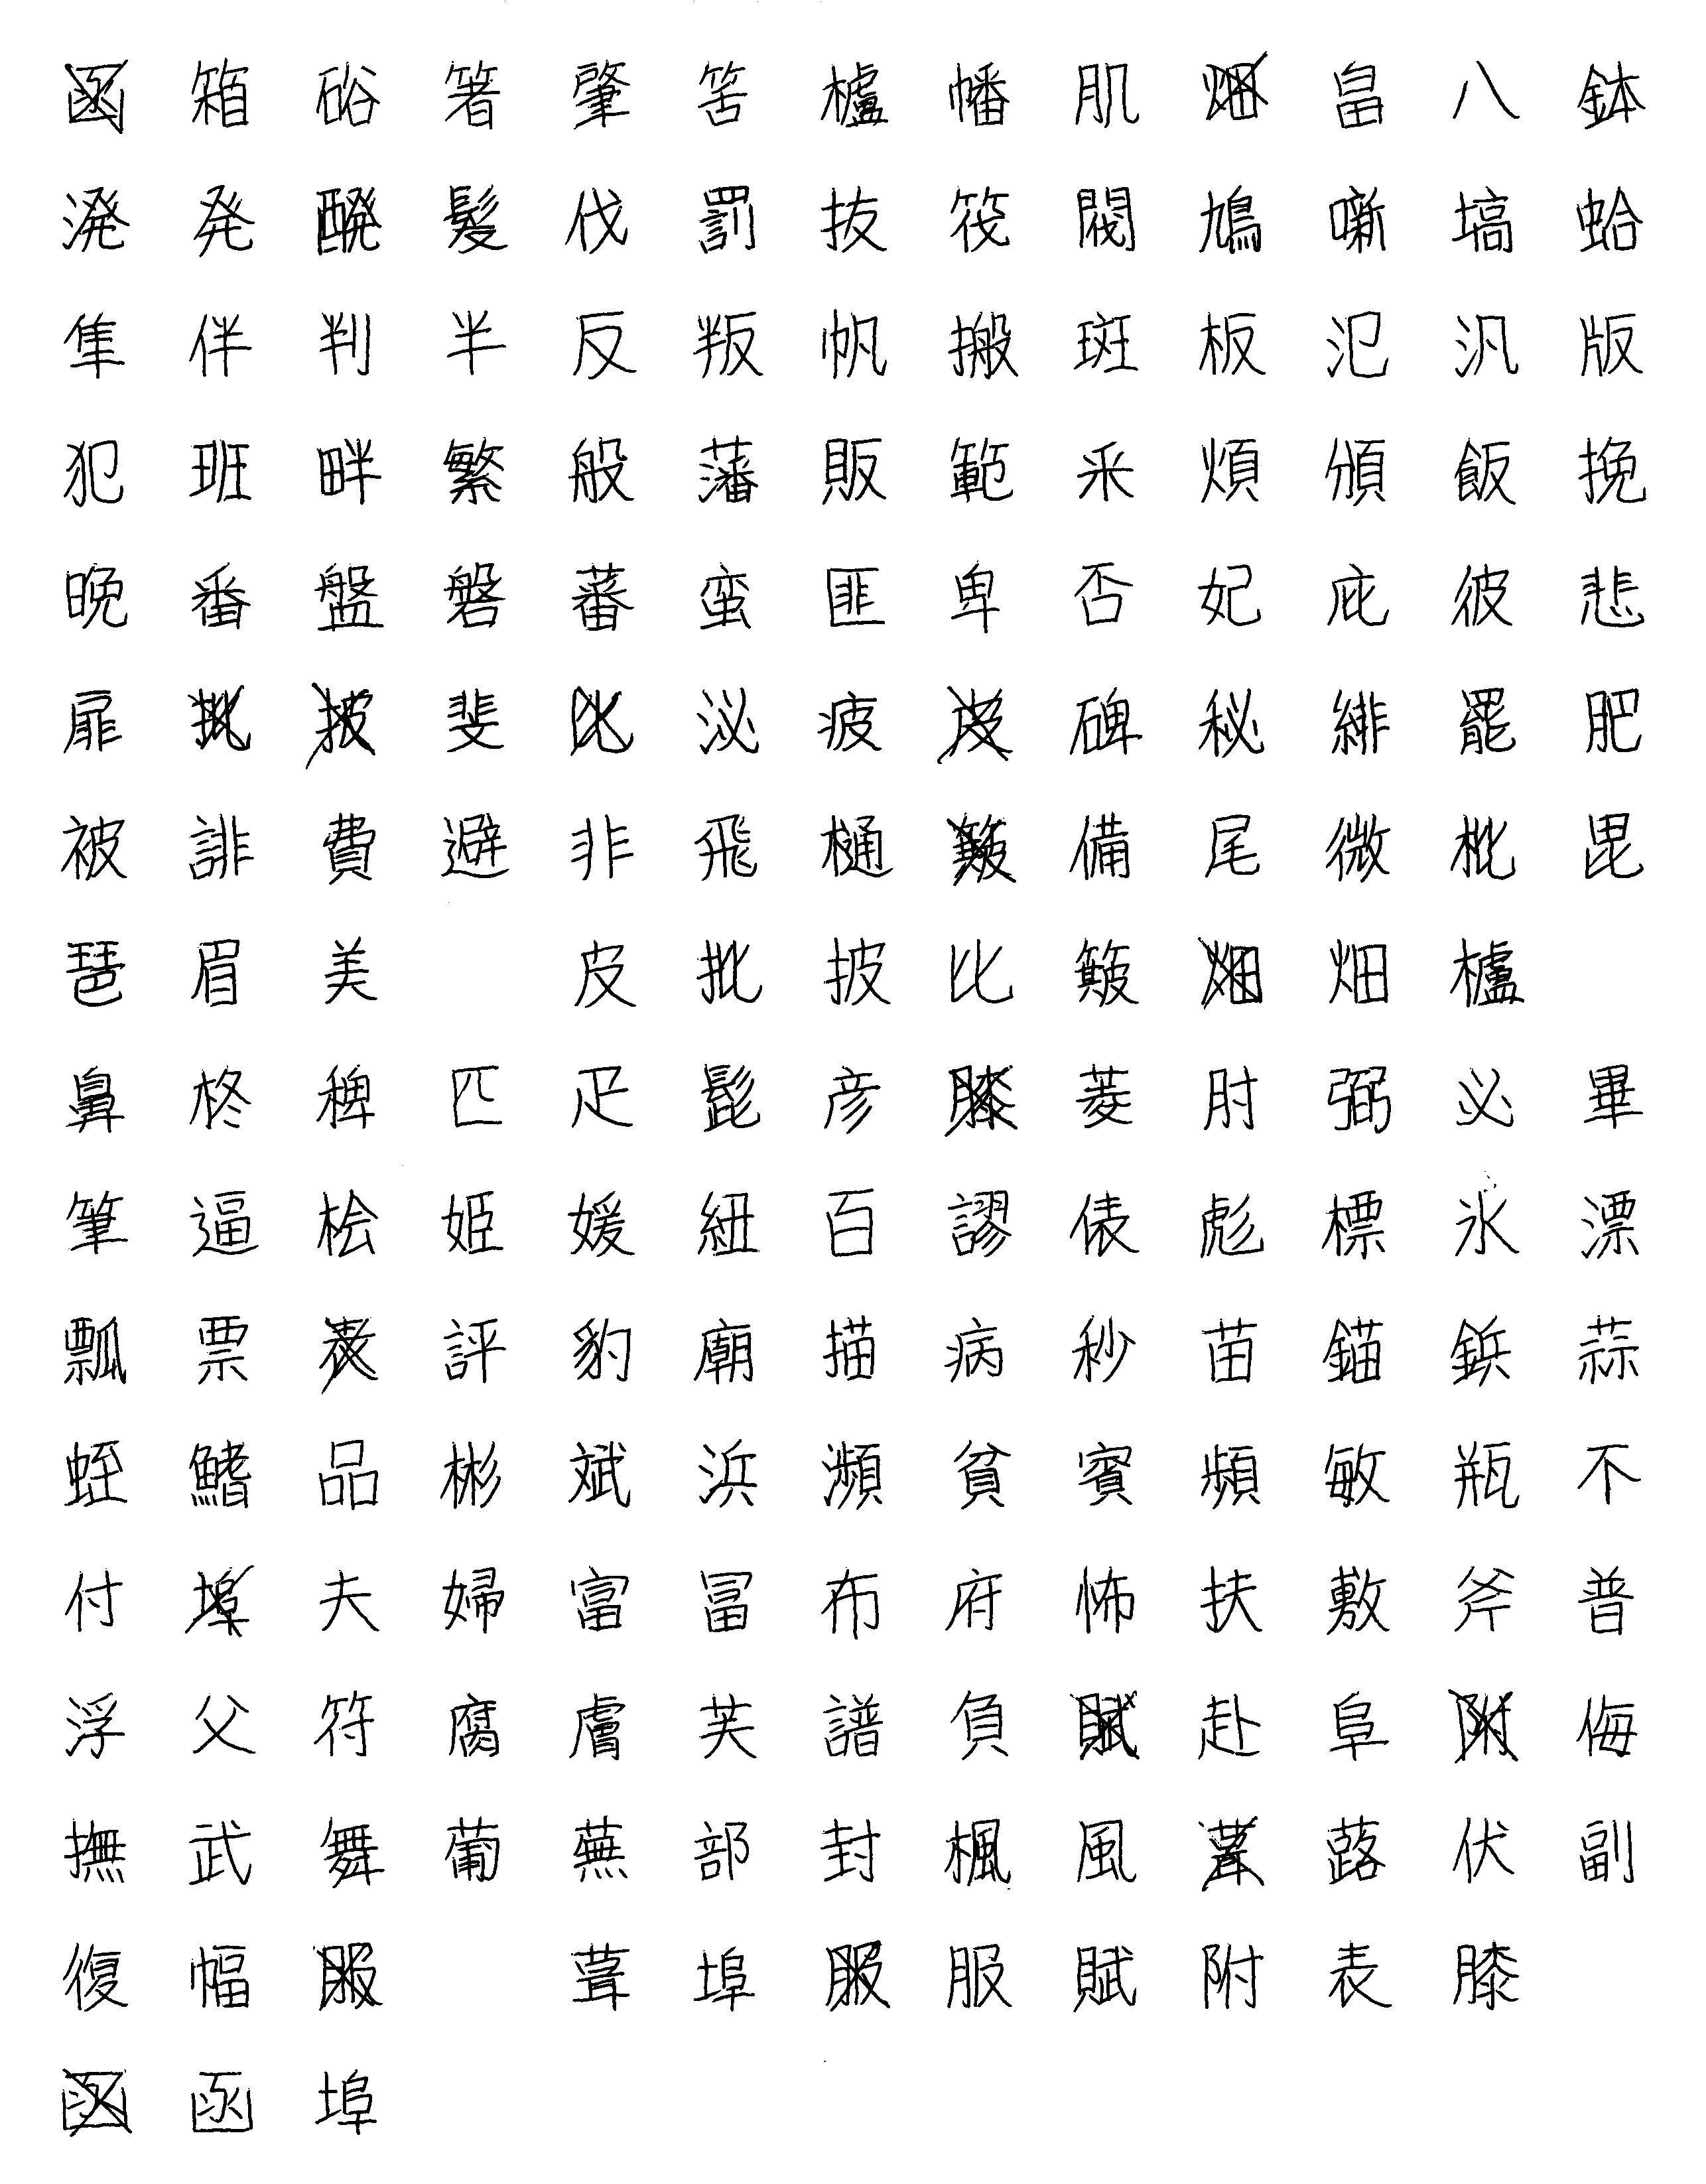 箱 硲 箸 肇 筈 櫨 幡 肌 畠 八 鉢
溌 発 醗 髪 伐 罰 抜 筏 閥 鳩 噺 塙 蛤
隼 伴 判 半 反 叛 帆 搬 斑 板 氾 汎 版
犯 班 畔 繁 般 藩 販 範 釆 煩 頒 飯 挽
晩 番 盤 磐 蕃 蛮 匪 卑 否 妃 庇 彼 悲
扉 斐 泌 疲 碑 秘 緋 罷 肥
被 誹 費 避 非 飛 樋 備 尾 微 枇 毘
琵 眉 美 皮 批 披 比 簸 畑 櫨
鼻 柊 稗 匹 疋 髭 彦 菱 肘 弼 必 畢
筆 逼 桧 姫 媛 紐 百 謬 俵 彪 標 氷 漂
瓢 票 評 豹 廟 描 病 秒 苗 錨 鋲 蒜
蛭 鰭 品 彬 斌 浜 瀕 貧 賓 頻 敏 瓶 不
付 夫 婦 富 冨 布 府 怖 扶 敷 斧 普
浮 父 符 腐 膚 芙 譜 負 赴 阜 侮
撫 武 舞 葡 蕪 部 封 楓 風 蕗 伏 副
復 幅 葺 埠 服 賦 附 表 膝
函 埠